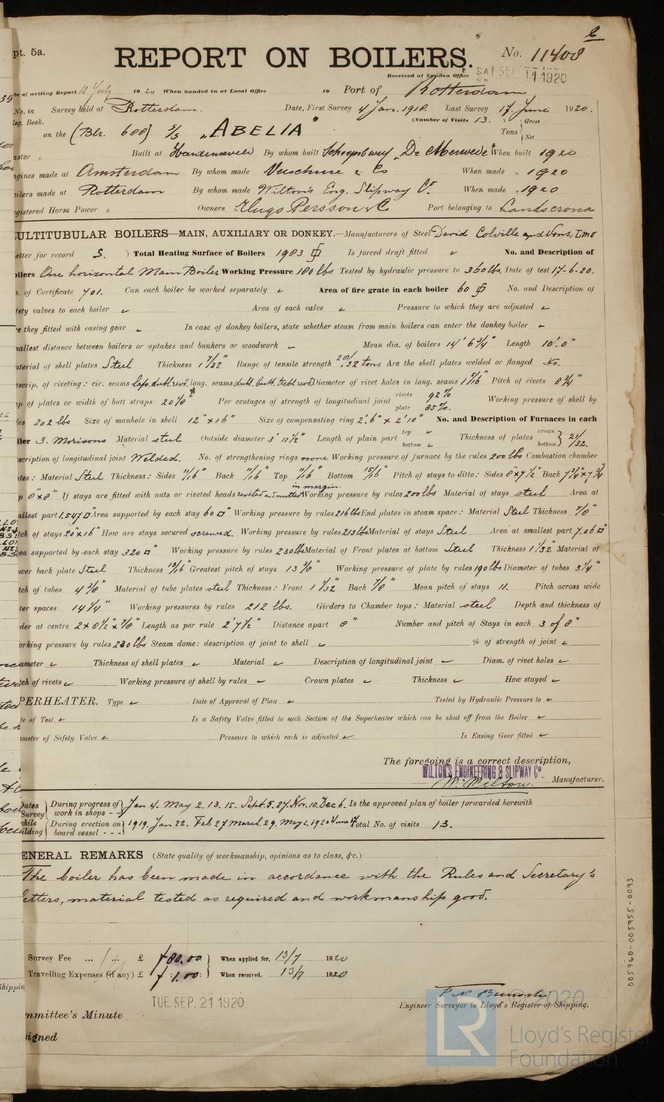 pt. 5a.
REPORT ON BOILERS.
No. 11408
Received at London Office SAT SEP 11 1920
te of writing Report 12 July 1920 When handed in at Local Office 19 Port of Rotterdam
No. in Survey held at Rotterdam. Date, First Survey 4 Jan. 1918. Last Survey 17 June 1920.
eg. Book. (Number of Visits 13.)
on the (Blr. 688) S/S "ABELIA" Tons { Gross Net
Built at By whom built "De Merwede" When built 1920
gines made at Amsterdam By whom made & Co When made 1920
ilers made at Rotterdam By whom made Wilton's Eng. Slipway Co. When made 1920
gistered Horse Power Owners Hugo Persson & Co Port belonging to Landscrona
ULTITUBULAR BOILERS—MAIN, AUXILIARY OR DONKEY.—Manufacturers of Steel David Colville and Sons, Ltd
etter for record S. Total Heating Surface of Boilers 1983 Is forced draft fitted No. and Description of
oilers One horizontal Main Boiler Working Pressure 180 lbs Tested by hydraulic pressure to 360 lbs. Date of test 17-6-20.
. of Certificate 701. Can each boiler be worked separately Area of fire grate in each boiler 60 No. and Description of
fety valves to each boiler Area of each valve Pressure to which they are adjusted
e they fitted with easing gear In case of donkey boilers, state whether steam from main boilers can enter the donkey boiler
mallest distance between boilers or uptakes and bunkers or woodwork Mean dia. of boilers 14' 6 3/4" Length 10'.0"
aterial of shell plates Steel Thickness Range of tensile strength 28/32 tons Are the shell plates welded or flanged No.
scrip. of riveting: cir. seams laps. dubl. rivd. long. seams dubl. butt. trebl rivd Diameter of rivet holes in long. seams Pitch of rivets
p of plates or width of butt straps Per centages of strength of longitudinal joint rivets 92% plate 85%. Working pressure of shell by
les 202 lbs Size of manhole in shell 12" x 16" Size of compensating ring 2'.6" x 2'10" No. and Description of Furnaces in each
iler 3. Morisons Material steel Outside diameter 3' 11 1/2" Length of plain part top bottom Thickness of plates crown bottom } 21/32.
scription of longitudinal joint Welded. No. of strengthening rings none Working pressure of furnace by the rules 200 lbs Combustion chamber
ates: Material Steel Thickness: Sides 11/16" Back 11/16" Top 11/16" Bottom 15/16" Pitch of stays to ditto: Sides 8" x 7 1/2" Back
p 8" x 8" If stays are fitted with nuts or riveted heads in margin Working pressure by rules 200 lbs Material of stays steel Area at
allest part Area supported by each stay 60 Working pressure by rules 216 lbs End plates in steam space: Material Steel Thickness 7/8"
tch of stays 20" x 16" How are stays secured screwed. Working pressure by rules 213 lbs Material of stays Steel Area at smallest part 7.06
ea supported by each stay 320 Working pressure by rules 230 lbs Material of Front plates at bottom Steel Thickness 1 1/32" Material of
wer back plate Steel Thickness Greatest pitch of stays Working pressure of plate by rules 190 lbs Diameter of tubes 3 1/4"
tch of tubes Material of tube plates steel Thickness: Front 1 1/32 Back 7/8" Mean pitch of stays 11. Pitch across wide
ter spaces 14 1/4" Working pressures by rules 212 lbs. Girders to Chamber tops: Material steel Depth and thickness of
rder at centre Length as per rule 2' 7 1/2" Distance apart 8" Number and pitch of Stays in each 3 of 8"
orking pressure by rules 230 lbs Steam dome: description of joint to shell % of strength of joint
iameter Thickness of shell plates Material Description of longitudinal joint Diam. of rivet holes
tch of rivets Working pressure of shell by rules Crown plates Thickness How stayed
PERHEATER. Type Date of Approval of Plan Tested by Hydraulic Pressure to
te of Test Is a Safety Valve fitted to each Section of the Superheater which can be shut off from the Boiler
ameter of Safety Valve Pressure to which each is adjusted Is Easing Gear fitted
The foregoing is a correct description,
WILTON'S ENGINEERING & SLIPWAY Co.
Wilton. Manufacturer.
Dates Survey while uilding { During progress of work in shops - - } Jan 4. May 2. 13. 15. Sept. 5. 27. Nov. 10. Dec 6. Is the approved plan of boiler forwarded herewith
{ During erection on board vessel - - - } 1919. Jan 22. Feb 27 March 29. May 2. 1920 Total No. of visits 13.
ENERAL REMARKS (State quality of workmanship, opinions as to class, &c.)
The boiler has been made in accordance with the Rules and Secretary's
letters, material tested as required and workmanship good.
Survey Fee ... £ 80.00 When applied for, 13/7 1920
Travelling Expenses (if any) £ 1.00 When received, 13/7 1920
TUE. SEP. 21 1920
Engineer Surveyor to Lloyd's Register of Shipping.
mmittee's Minute
signed
005740-005955-0093
© 2020
LR
Lloyd's Register
Foundation